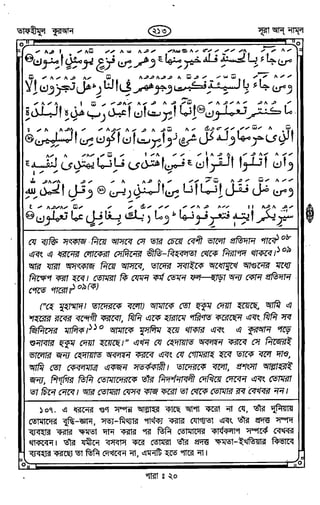 তাফহীমুল কুরআন
২১৩
সূরা আন্ নামল
مَنْ جَاءَ بِالْحَسَنَةِ فَلَهُ خَيْرٌ مِّنْهَا ۚ وَهُمْ مِّنْ فَزَعٍ يَوْمَئِذٍ اٰمِنُوْنَ
وَمَنْ جَاءَ بِالسَّيِّئَةِ فَكُبَّتْ وُجُوْهُهُمْ فِي النَّارِ ۗ هَلْ تُجْزَوْنَ اِلَّا
مَا كُنْتُمْ تَعْمَلُوْنَ اِنَّمَا اُمِرْتُ اَنْ اَعْبُدَ رَبَّ هٰذِهِ الْبَلْدَةِ
الَّذِيْ حَرَّمَهَا وَلَهُ كُلُّ شَيْءٍ وَّاُمِرْتُ اَنْ اَكُوْنَ مِنَ الْمُسْلِمِيْنَ
وَاَنْ اَتْلُوَا الْقُرْاٰنَ ۚ فَمَنِ اهْتَدٰى فَاِنَّمَا يَهْتَدِيْ لِنَفْسِهٖ ۚ
وَمَنْ ضَلَّ فَقُلْ اِنَّمَا اَنَا مِنَ الْمُنْذِرِيْنَ وَقُلِ الْحَمْدُ لِلّٰهِ
سَيُرِيْكُمْ اٰيٰتِهٖ فَتَعْرِفُوْنَهَا ۗ وَمَا رَبُّكَ بِغَافِلٍ عَمَّا تَعْمَلُوْنَ
যে ব্যক্তি সৎকাজ নিয়ে আসবে সে তার চেয়ে বেশী ভালো প্রতিদান পাবে১০৮
এবং এ ধরনের লোকেরা সেদিনের ভীতি-বিহবলতা থেকে নিরাপদ থাকবে।১০৯
আর যারা অসৎকাজ নিয়ে আসবে, তাদের সবাইকে অধোমুখে আগুনের মধ্যে
নিক্ষেপ করা হবে। তোমরা কি যেমন কর্ম তেমন ফল—ছাড়া অন্য কোন প্রতিদান
পেতে পারো?১০৯(ক)
("হে মুহাম্মাদ! তাদেরকে বলো) আমাকে তো হুকুম দেয়া হয়েছে, আমি এ
শহরের রবের বন্দেগী করবো, যিনি একে হারামে পরিণত করেছেন এবং যিনি সব
জিনিসের মালিক।১১০ আমাকে মুসলিম হয়ে থাকার এবং এ কুরআন পড়ে
শুনাবার হুকুম দেয়া হয়েছে।" এখন যে হেদায়াত অবলম্বন করবে সে নিজেরই
ভালোর জন্য হেদায়াত অবলম্বন করবে এবং যে গোমরাহ হবে তাকে বলে দাও,
আমি তো কেবলমাত্র একজন সতর্ককারী। তাদেরকে বলো, প্রশংসা আল্লাহরই
জন্য, শিগ্‌গির তিনি তোমাদেরকে তাঁর নিদর্শনাবলী দেখিয়ে দেবেন এবং তোমরা
তা চিনে নেবে। আর তোমরা যেসব কাজ করো তা থেকে তোমার রব বেখবর নন।
১০৭. এ ধরনের গুণ সম্পন্ন আল্লাহর কাছে আশা করো না যে, তাঁর দুনিয়ায়
তোমাদের বুদ্ধি-জ্ঞান, সত্য-মিথ্যার পার্থক্য করার যোগ্যতা এবং তাঁর প্রদত্ত সম্পদ
ব্যবহার করার ক্ষমতা দান করার পর তিনি তোমাদের কার্যকলাপ সম্পর্কে বেখবর
থাকবেন। তাঁর যমীনে বসবাস করে তোমরা তাঁর প্রদত্ত ক্ষমতা-ইখতিয়ার কিভাবে
ব্যবহার করছো তা তিনি দেখবেন না, এমনটি হতে পারে না।
পারা : ২০